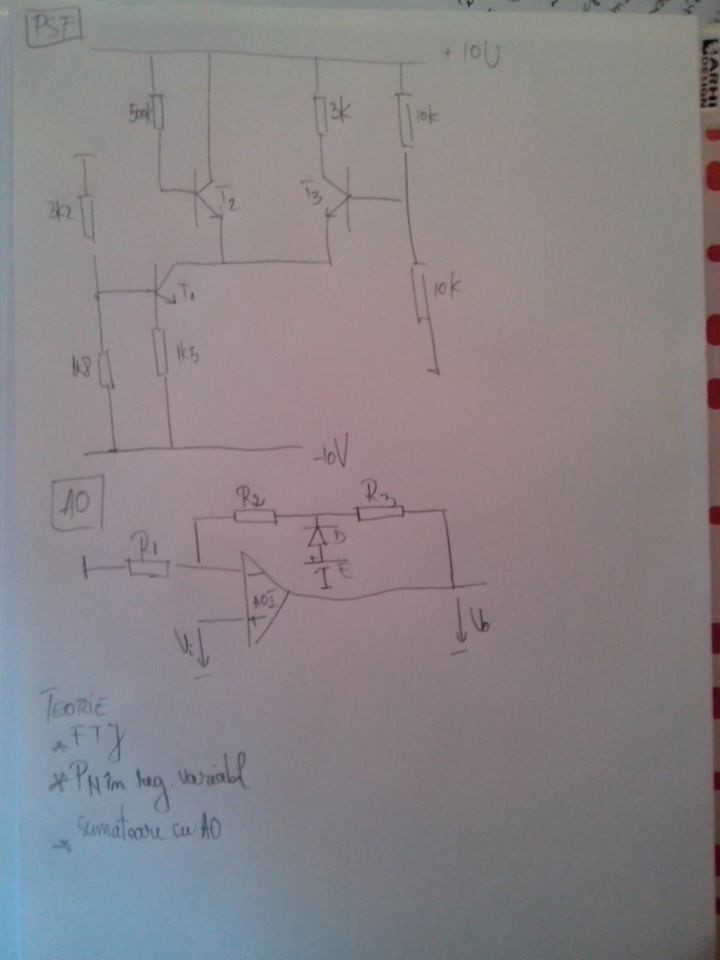 PSF
+10V
500k
3k
10k
T2
T3
3k2
T1
10k
1k8
1k5
-10V
AO
R2
R3
R1
D
+
E
-
AOI
+
Vi
Vo
TEORIE
* FTJ
* PN în reg. variabil
* sumatoare cu AO
ARHI
DESIGN